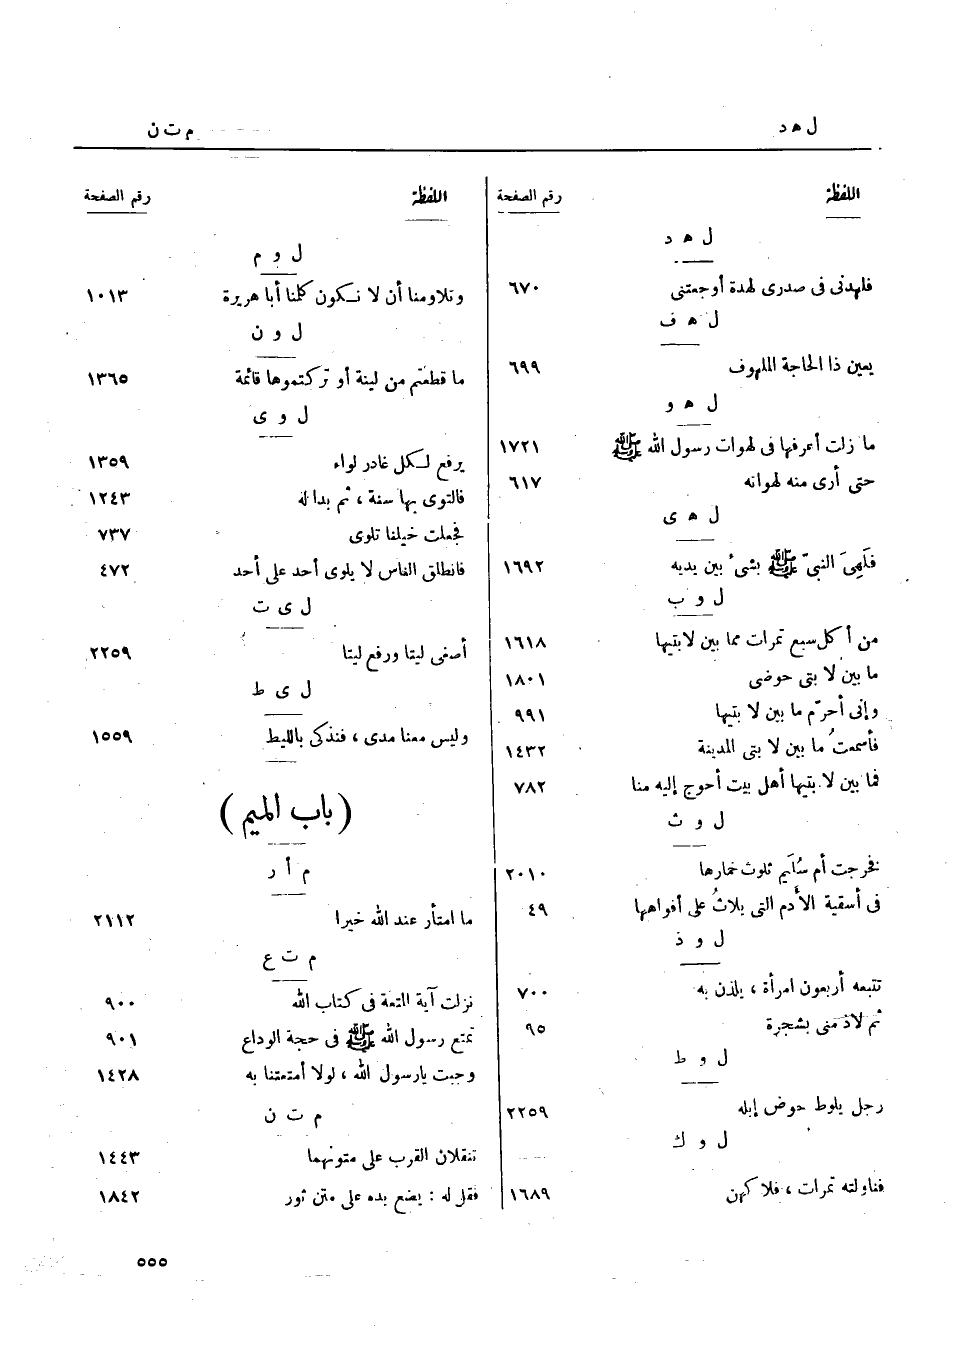 ل ه د
م ت ن
اللفظة رقم الصفحة
ل ه د
فلهدنى فى صدرى لهدة أوجعتنى ٦٧٠
ل ه ف
يعين ذا الحاجة الملهوف ٦٩٩
ل ه و
ما زلت أعرفها فى لهوات رسول الله ﷺ ١٧٢١
حتى أرى منه لهواته ٦١٧
ل ه ى
فَلَهِىَ النبىّ ﷺ بشىء بين يديه ١٦٩٢
ل و ب
من أكل سبع تمرات مما بين لابتيها ١٦١٨
ما بين لا بتى حوضى ١٨٠١
وإنى أحرّم ما بين لا بتيها ٩٩١
فأسمعتُ ما بين لا بتى المدينة ١٤٣٢
فما بين لا بتيها أهل بيت أحوج إليه منا ٧٨٢
ل و ث
فخرجت أم سُلَيم تلوث خمارها ٢٠١٠
فى أسقية الأَدم التى يلاثُ على أفواهها ٤٩
ل و ذ
تتبعه أربعون امرأة ، يلذن به ٧٠٠
ثم لاذ منى بشجرة ٩٥
ل و ط
رجل يلوط حوض إبله ٢٢٥٩
ل و ك
فناولته تمرات ، فلاكهن ١٦٨٩
اللفظة رقم الصفحة
ل و م
وتلاومنا أن لا نكون كلمنا أبا هريرة ١٠١٣
ل و ن
ما قطعتم من لينة أو تركتموها قائمة ١٣٦٥
ل و ى
يرفع لكل غادر لواء ١٣٥٩
فالتوى بها سنة ، ثم بدا له ١٢٤٣
فجعلت خيلنا تلوى ٧٣٧
فانطلق الناس لا يلوى أحد على أحد ٤٧٢
ل ى ت
أصغى ليتا ورفع ليتا ٢٢٥٩
ل ى ط
وليس معنا مدى ، فنذكى بالليط ١٥٥٩
( باب الميم )
م أ ر
ما امتأر عند الله خيرا ٢١١٢
م ت ع
نزلت آية المتعة فى كتاب الله ٩٠٠
تمتع رسول الله ﷺ فى حجة الوداع ٩٠١
وجبت يارسول الله ، لولا أمتعتنا به ١٤٢٨
م ت ن
تنقلان القرب على متونهما ١٤٤٣
فقل له : يضع يده على متن ثور ١٨٤٢
٥٥٥